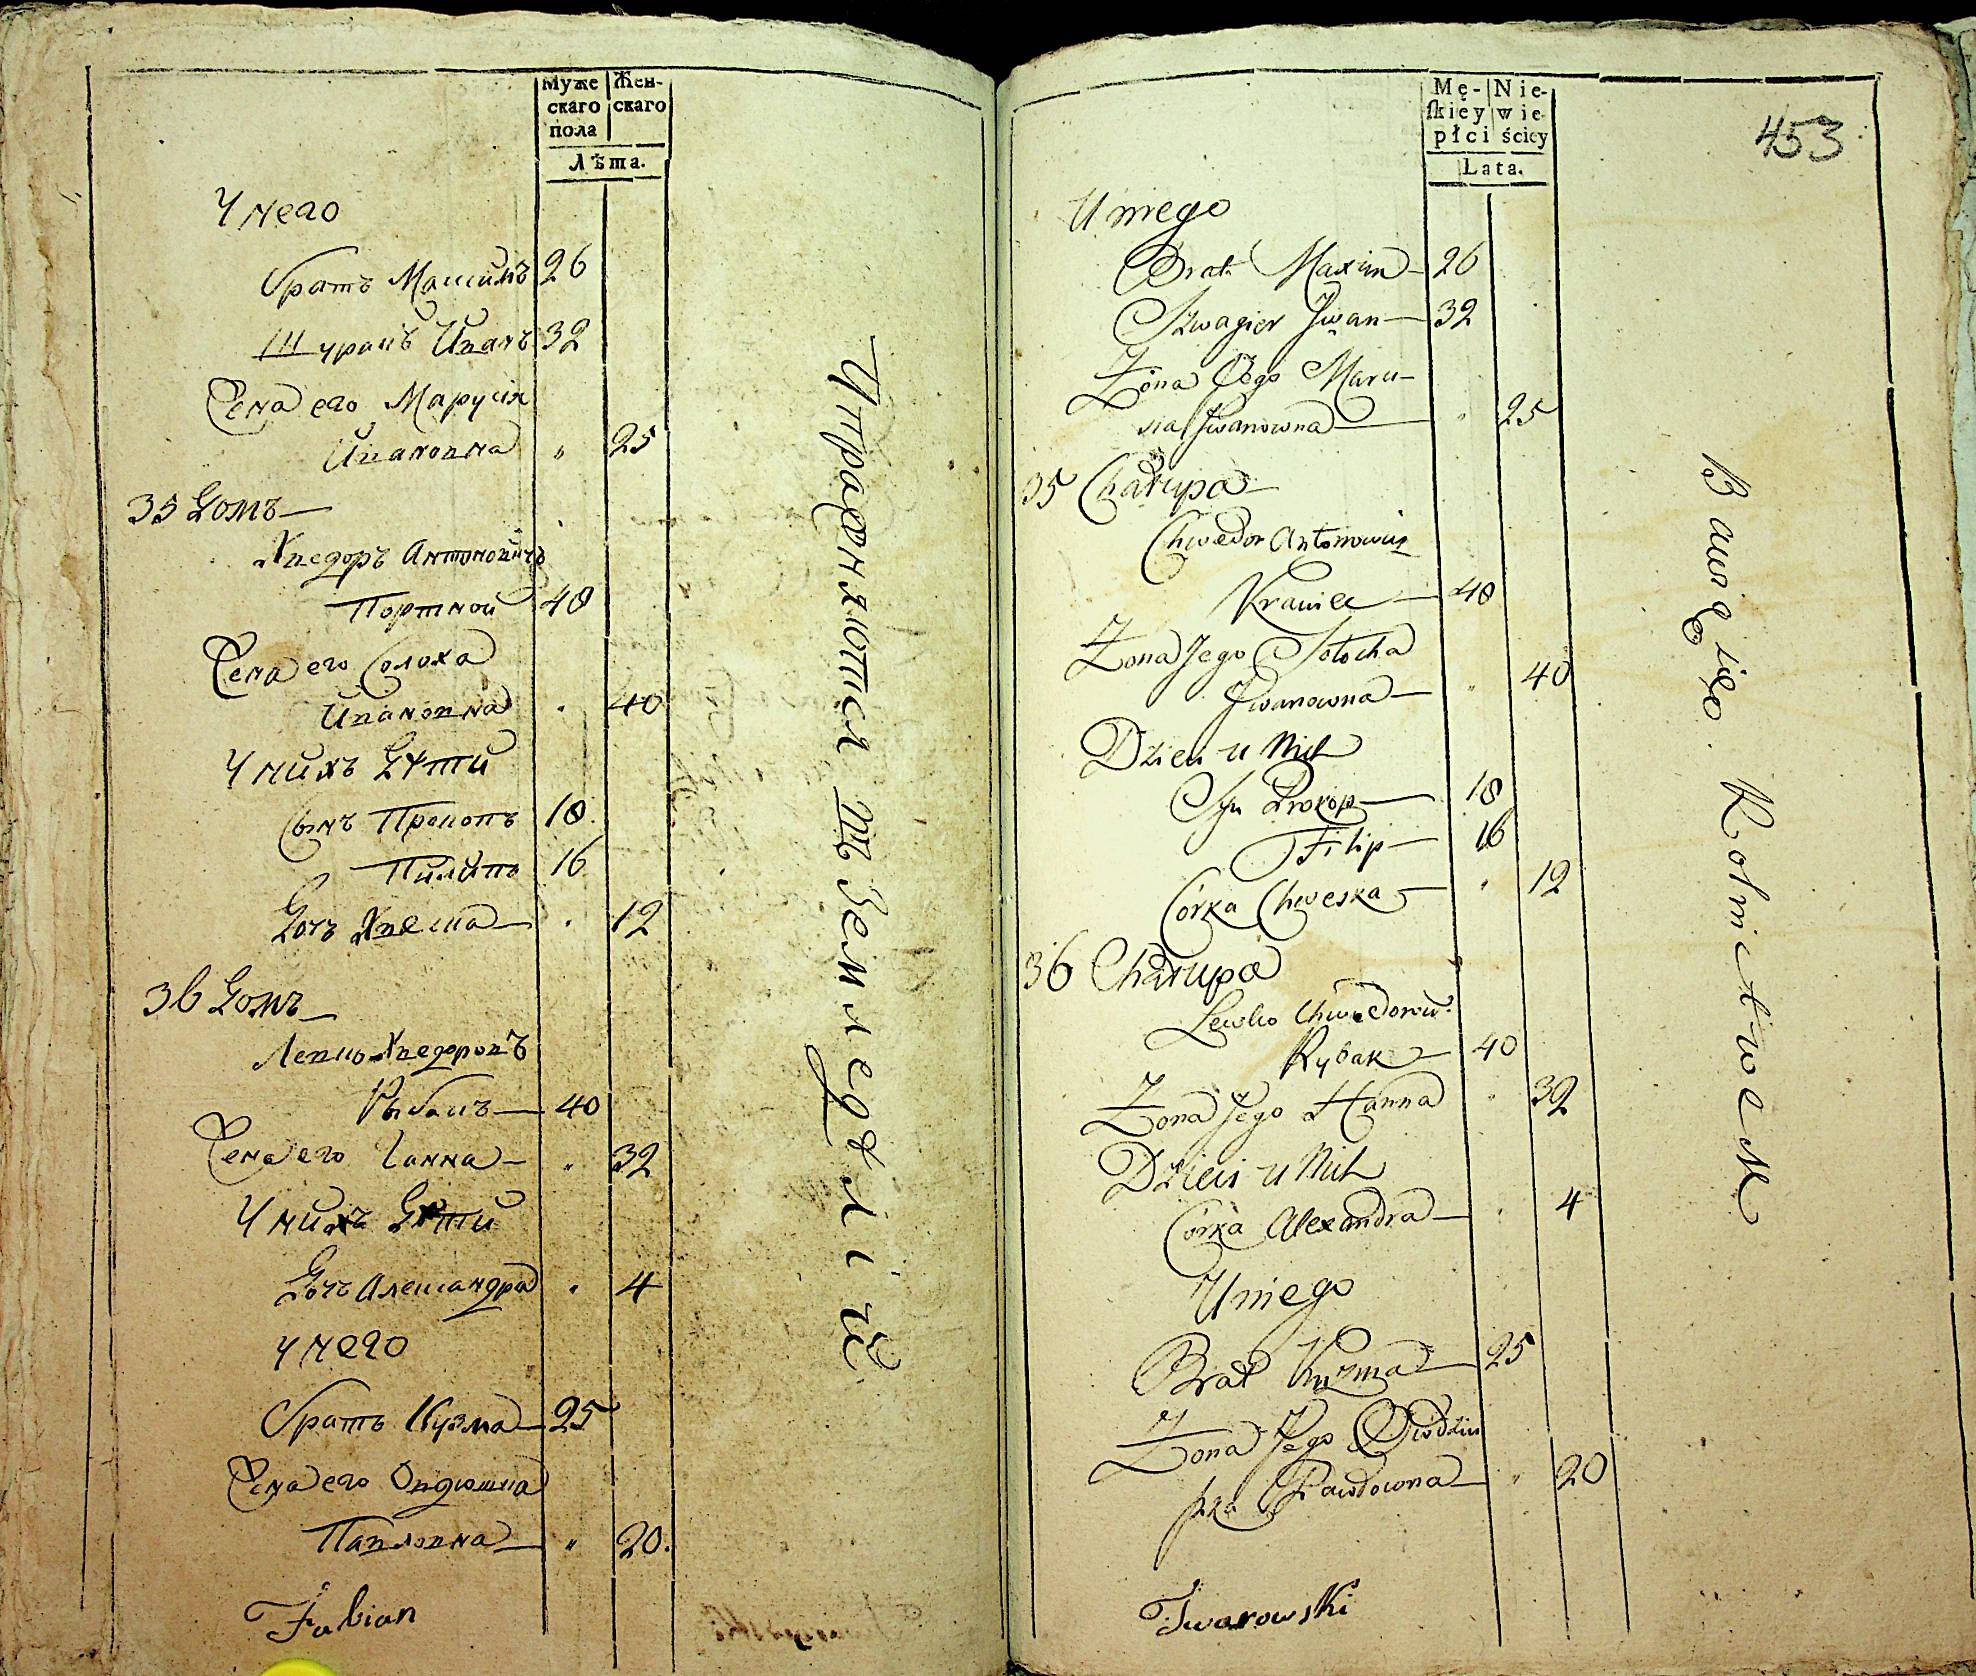 Муже
скаго
пола
Жен-
скаго
Лѣта.
У него
братъ Максимъ 26
Шуринъ Иванъ 32
Жена его Марусія
Ивановна „ 25
35 Домъ —
Хведоръ Антоновичъ
Портной 48
Жена его Солоха
Ивановна „ 40
У нихъ Дѣти
Сынъ Прокопъ 18.
Пилипъ 16
Дочъ Хвеска — „ 12
36 Домъ —
Левко Хведоровъ
Рыбакъ — 40
Жена его Ганна — „ 32
У нихъ Дѣти
Дочъ Александра „ 4
У него
братъ Кузма — 25
Жена его Овдюшка
Павловна — „ 20.
Fabian
Упражняются въ Земледѣліи
Mę-
skiey
płci
Nie-
wie-
ściey
Lata.
453
U niego
Brat Maxim — 26
Szwagier Jwan — 32
Żona Jego Maru-
sia Jwanowna — „ 25
35 Chałupa —
Chwedor Antonowicz
Krawiec — 48
Żona Jego Sołocha
Jwanowna — „ 40
Dzieci u Nich
Syn Prokop — 18
Filip — 16
Córka Chweska — „ 12
36 Chałupa
Lewko Chwedorow:
Rybak — 40
Żona Jego Hanna „ 32
Dzieci u Nich
Córka Alexandra — „ 4
U niego
Brat Kuzma — 25
Żona Jego Owdziu
szka Pawłowna — „ 20
Twarowski
Bawią się Rolnictwem